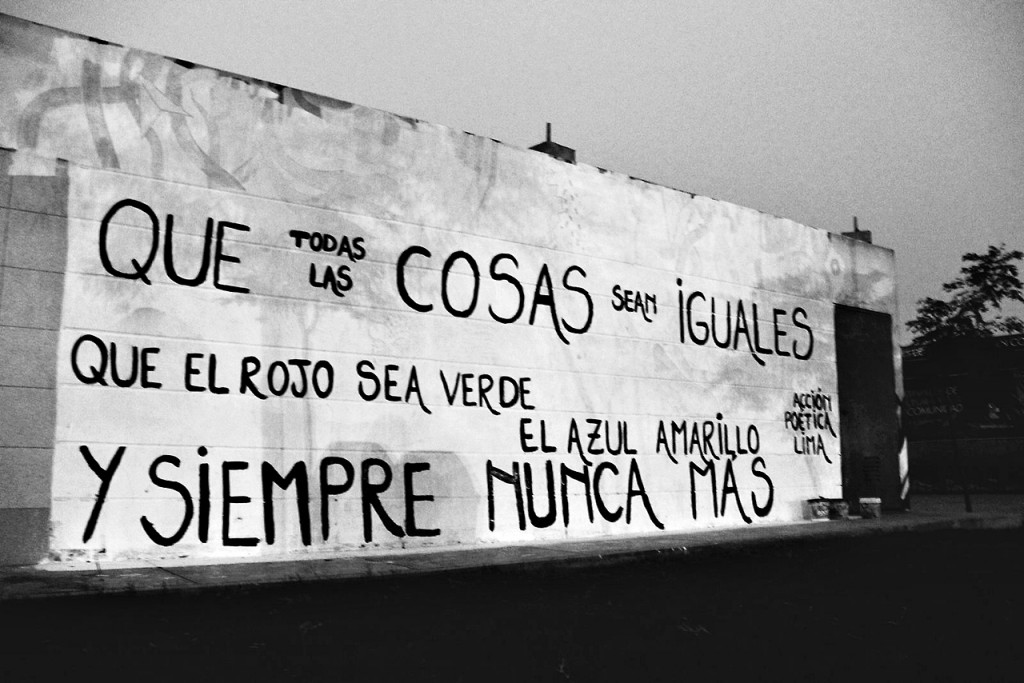 QUE TODAS LAS COSAS SEAN iGUALES
QUE EL ROJO SEA VERDE
EL AZUL AMARiLLO
Y SiEMPRE NUNCA MÁS
ACCiÓN
POÉTiCA
LiMA